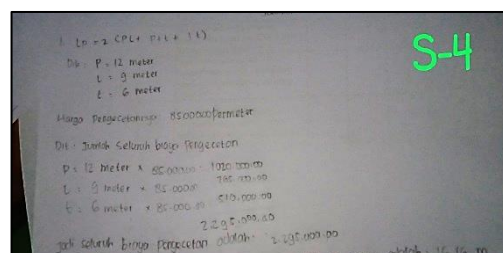 S-4
1. LP = 2 (PL + P.t + l.t)
Dik : P = 12 meter
L = 9 meter
t = 6 meter
Harga Pengecetannya 85000.00/permeter
Dit : Jumlah seluruh biaya Pengecetan
P = 12 meter × 85.000.00 : 1020.000.00
L = 9 meter × 85.000.00 765.000.00
t = 6 meter × 85.000.00 510.000.00
2.295.000.00
Jadi seluruh biaya Pengecetan adalah : 2.295.000.00
adalah